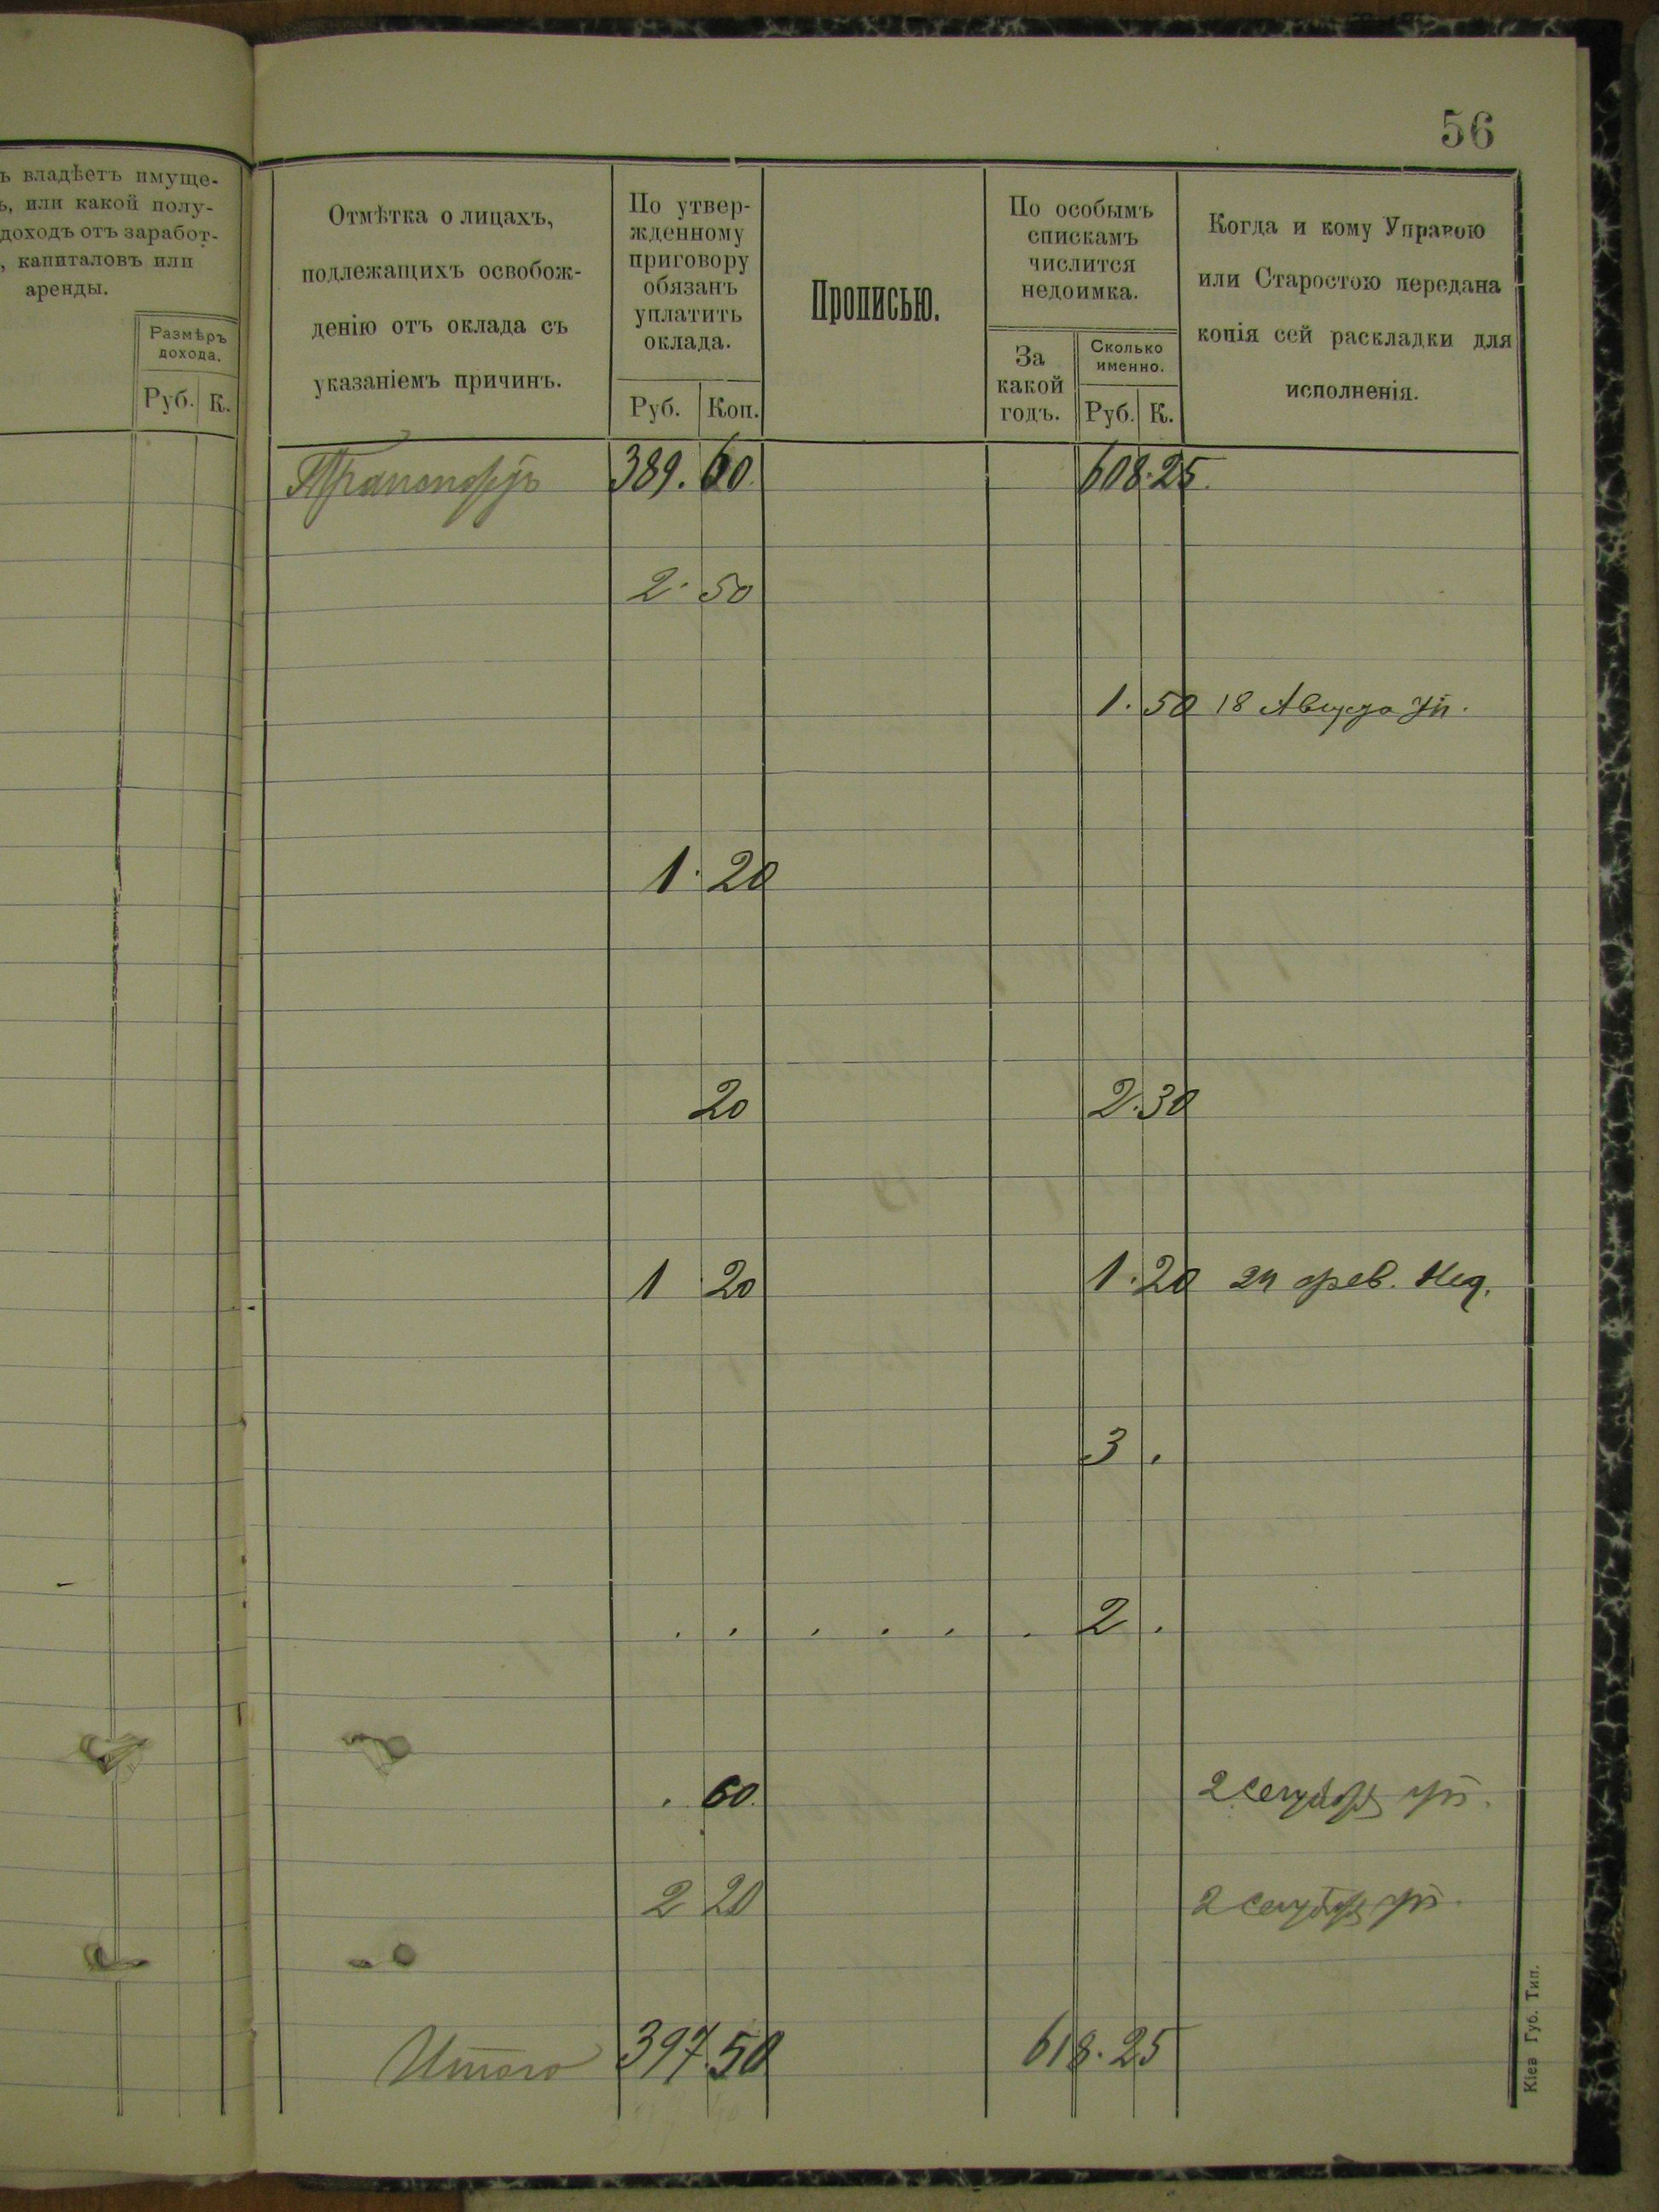 56
ъ владѣетъ имуще-
ь, или какой полу-
доходъ отъ заработ-
, капиталовъ или
аренды.
Размѣръ
дохода.
Руб. К.
Отмѣтка о лицахъ,
подлежащихъ освобож-
денію отъ оклада съ
указаніемъ причинъ.
По утвер-
жденному
приговору
обязанъ
уплатить
оклада.
Руб. Коп.
Прописью.
По особымъ
спискамъ
числится
недоимка.
За
какой
годъ.
Сколько
именно.
Руб. К.
Когда и кому Управою
или Старостою передана
копія сей раскладки для
исполненія.
Транспортъ 389. 60. 608. 25.
2. 50
1. 50 18 Августа
1. 20
20 2. 30
1 20 1. 20 фев.
3 .
. . . . . . 2 .
. 60. 2 сентября
2 20 2 сентября
Итого 397. 50 618. 25
Кіев Губ. Тип.